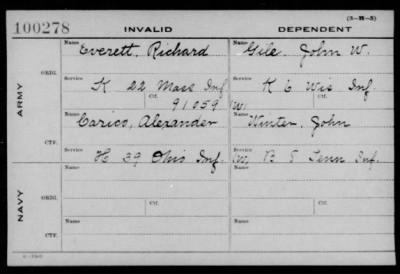 (3-H-3)
100278 INVALID DEPENDENT
Name Everett, Richard Name Gile, John W.
ARMY
ORIG.
Service K 22 Mass Inf Service K 6 Wis Inf.
Ctf. 91059 Ctf. W.
Name Carico, Alexander Name Winter, John
CTF.
Service H 39 Ohio Inf. Service M B 5 Tenn Inf.
NAVY
Name Name
ORIG.
Service Ctf. Service Ctf.
Name Name
CTF.
Service Service